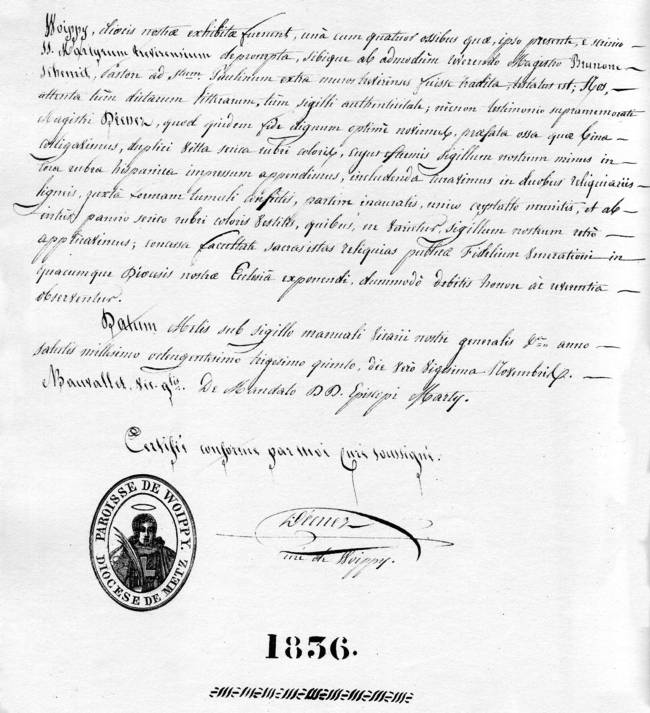 Woippy, diocis nostræ exhibitæ fuerunt, unà cum quatuor ossibus quæ, ipso presente, e scrinio
SS. Martyrum trevirensium deprompta, sibique ab admodùm reverendo Magistro Brunone
Schemit, Pastore ad Stum Paulinum extra muros trevirenses fuisse tradita, testatus est; Nos,
attenta tùm dictarum litterarum, tùm sigilli authenticitate; necnon testimonio supramemorati
Magistri Dienez, quod quidem fide dignum optimè novimus, præfata ossa quæ
colligavimus, duplici vitta serica rubri coloris, cujus extremis sigillum nostrum minus in
cera rubra hispanica impressum appendimus, includenda curavimus in duobus reliquiariis
ligneis, juxta formam tumuli confectis, partim inauratis, unico crystallo munitis, et ab
intùs panno serico rubri coloris vestitis, quibus, ne varietur, sigillum nostrum
applicavimus; concessa facultate sacras istas reliquias publicæ Fidelium venerationi in
quacumque Diocesis nostræ Ecclesiâ exponendi, dummodò debitis honor ac reverentia
observentur.
Datum Metis sub sigillo manuali Vicarii nostri generalis anno
salutis millesimo octengentesimo trigesimo quinto, die verò vigesima Novembris.
Mauvallet. vic. glis. De Mandato DD. Episcopi Marty.
Certifié conforme par moi Curé soussigné.
Dienez
curé de Woippy.
PAROISSE DE WOIPPY.
DIOCESE DE METZ
1836.